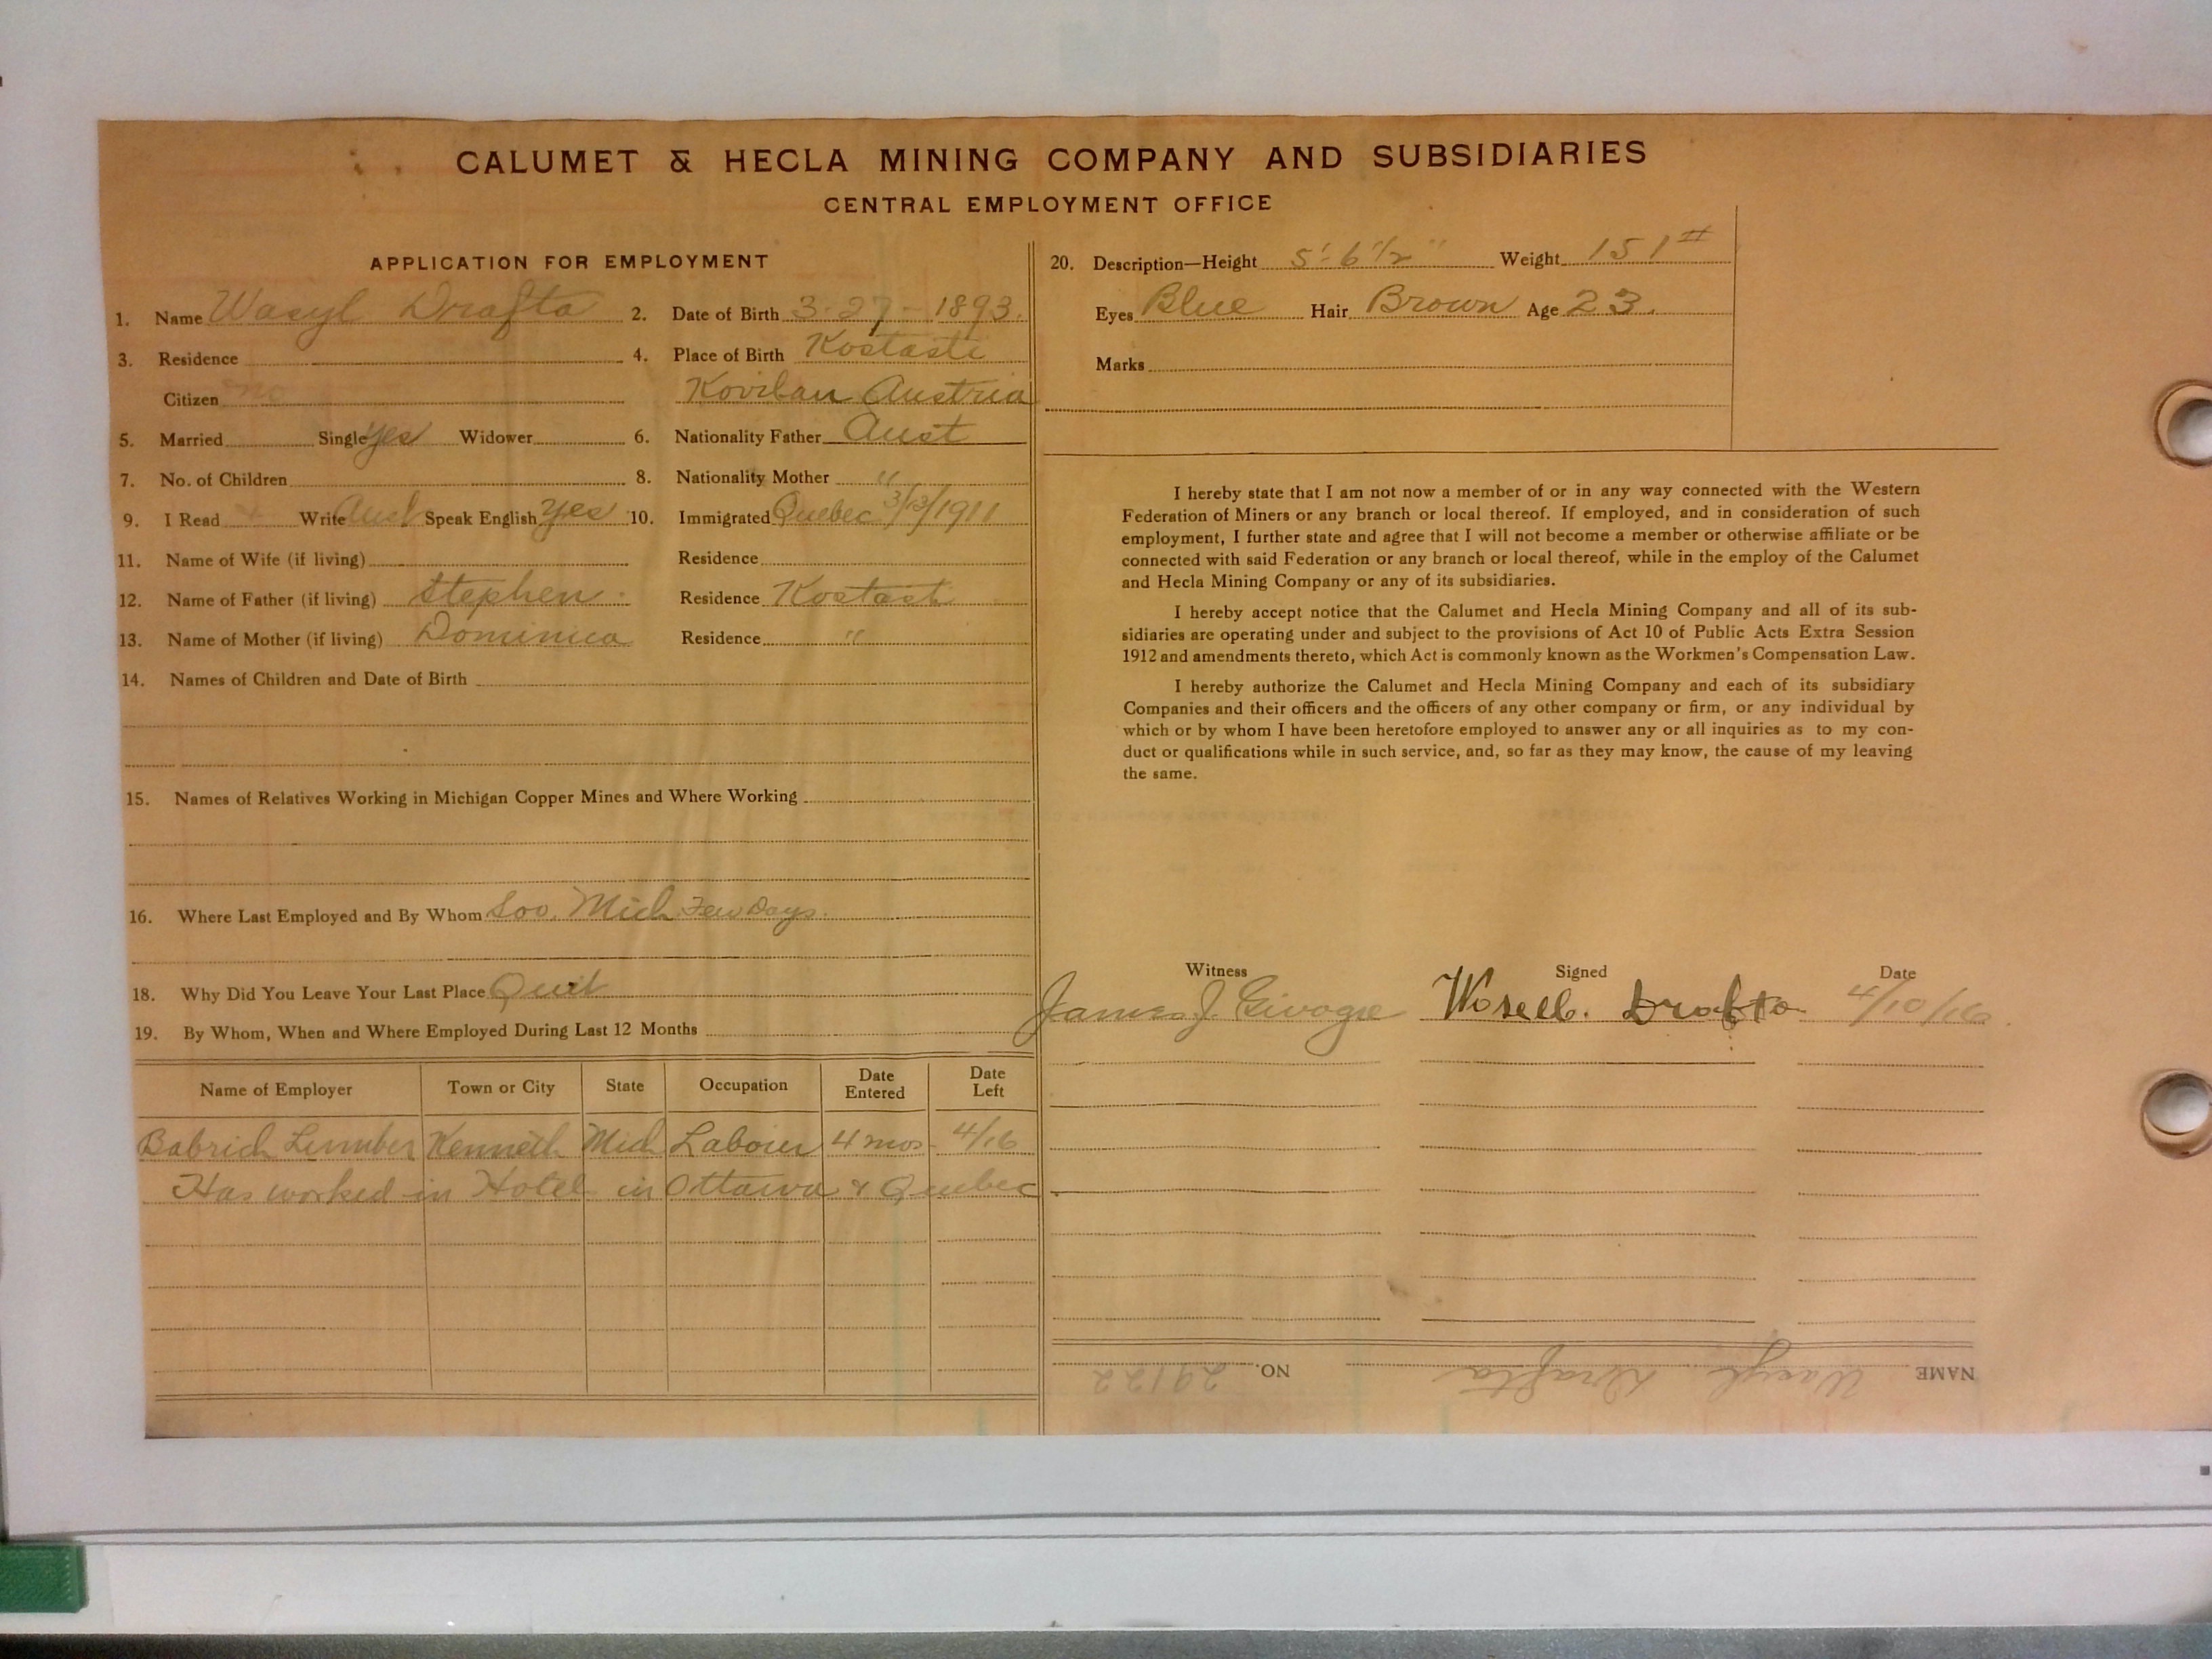 CALUMET & HECLA MINING COMPANY AND SUBSIDIARIES
CENTRAL EMPLOYMENT OFFICE
APPLICATION FOR EMPLOYMENT
1. Name Wasyl Drafta 2. Date of Birth 3-27-1893.
3. Residence 4. Place of Birth Kostasti
Citizen no Austria
5. Married Single yes Widower 6. Nationality Father Aust
7. No. of Children 8. Nationality Mother "
9. I Read Write Aust Speak English yes 10. Immigrated Quebec 3/13/1911
11. Name of Wife (if living) Residence
12. Name of Father (if living) Stephen Residence Kostasti
13. Name of Mother (if living) Dominica Residence "
14. Names of Children and Date of Birth
15. Names of Relatives Working in Michigan Copper Mines and Where Working
16. Where Last Employed and By Whom Soo, Mich. Few Days.
18. Why Did You Leave Your Last Place Quit
19. By Whom, When and Where Employed During Last 12 Months
Name of Employer Town or City State Occupation Date Entered Date Left
Lumber Kenneth Mich Labour 4 mos - 4/16
Has worked in Hotel in Ottawa & Quebec
20. Description—Height 5'-6 1/2" Weight 151#
Eyes Blue Hair Brown Age 23.
Marks
I hereby state that I am not now a member of or in any way connected with the Western
Federation of Miners or any branch or local thereof. If employed, and in consideration of such
employment, I further state and agree that I will not become a member or otherwise affiliate or be
connected with said Federation or any branch or local thereof, while in the employ of the Calumet
and Hecla Mining Company or any of its subsidiaries.
I hereby accept notice that the Calumet and Hecla Mining Company and all of its sub-
sidiaries are operating under and subject to the provisions of Act 10 of Public Acts Extra Session
1912 and amendments thereto, which Act is commonly known as the Workmen's Compensation Law.
I hereby authorize the Calumet and Hecla Mining Company and each of its subsidiary
Companies and their officers and the officers of any other company or firm, or any individual by
which or by whom I have been heretofore employed to answer any or all inquiries as to my con-
duct or qualifications while in such service, and, so far as they may know, the cause of my leaving
the same.
Witness Signed Date
James J. Drafto 4/10/16
NAME Wasyl Drafta NO. 29122